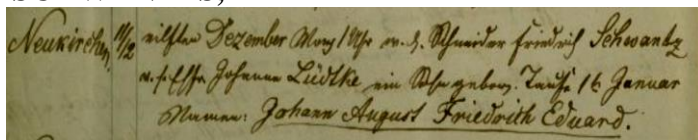 Neukirchen, 11/12 eilften Dezember Morg 1 Uhr w. d. Schneider Friedrich Schwantz
v. s. Ehfr Johanne Lüdtke ein Sohn geboren. Taufe 16 Januar
Namen: Johann August Friedrich Eduard.